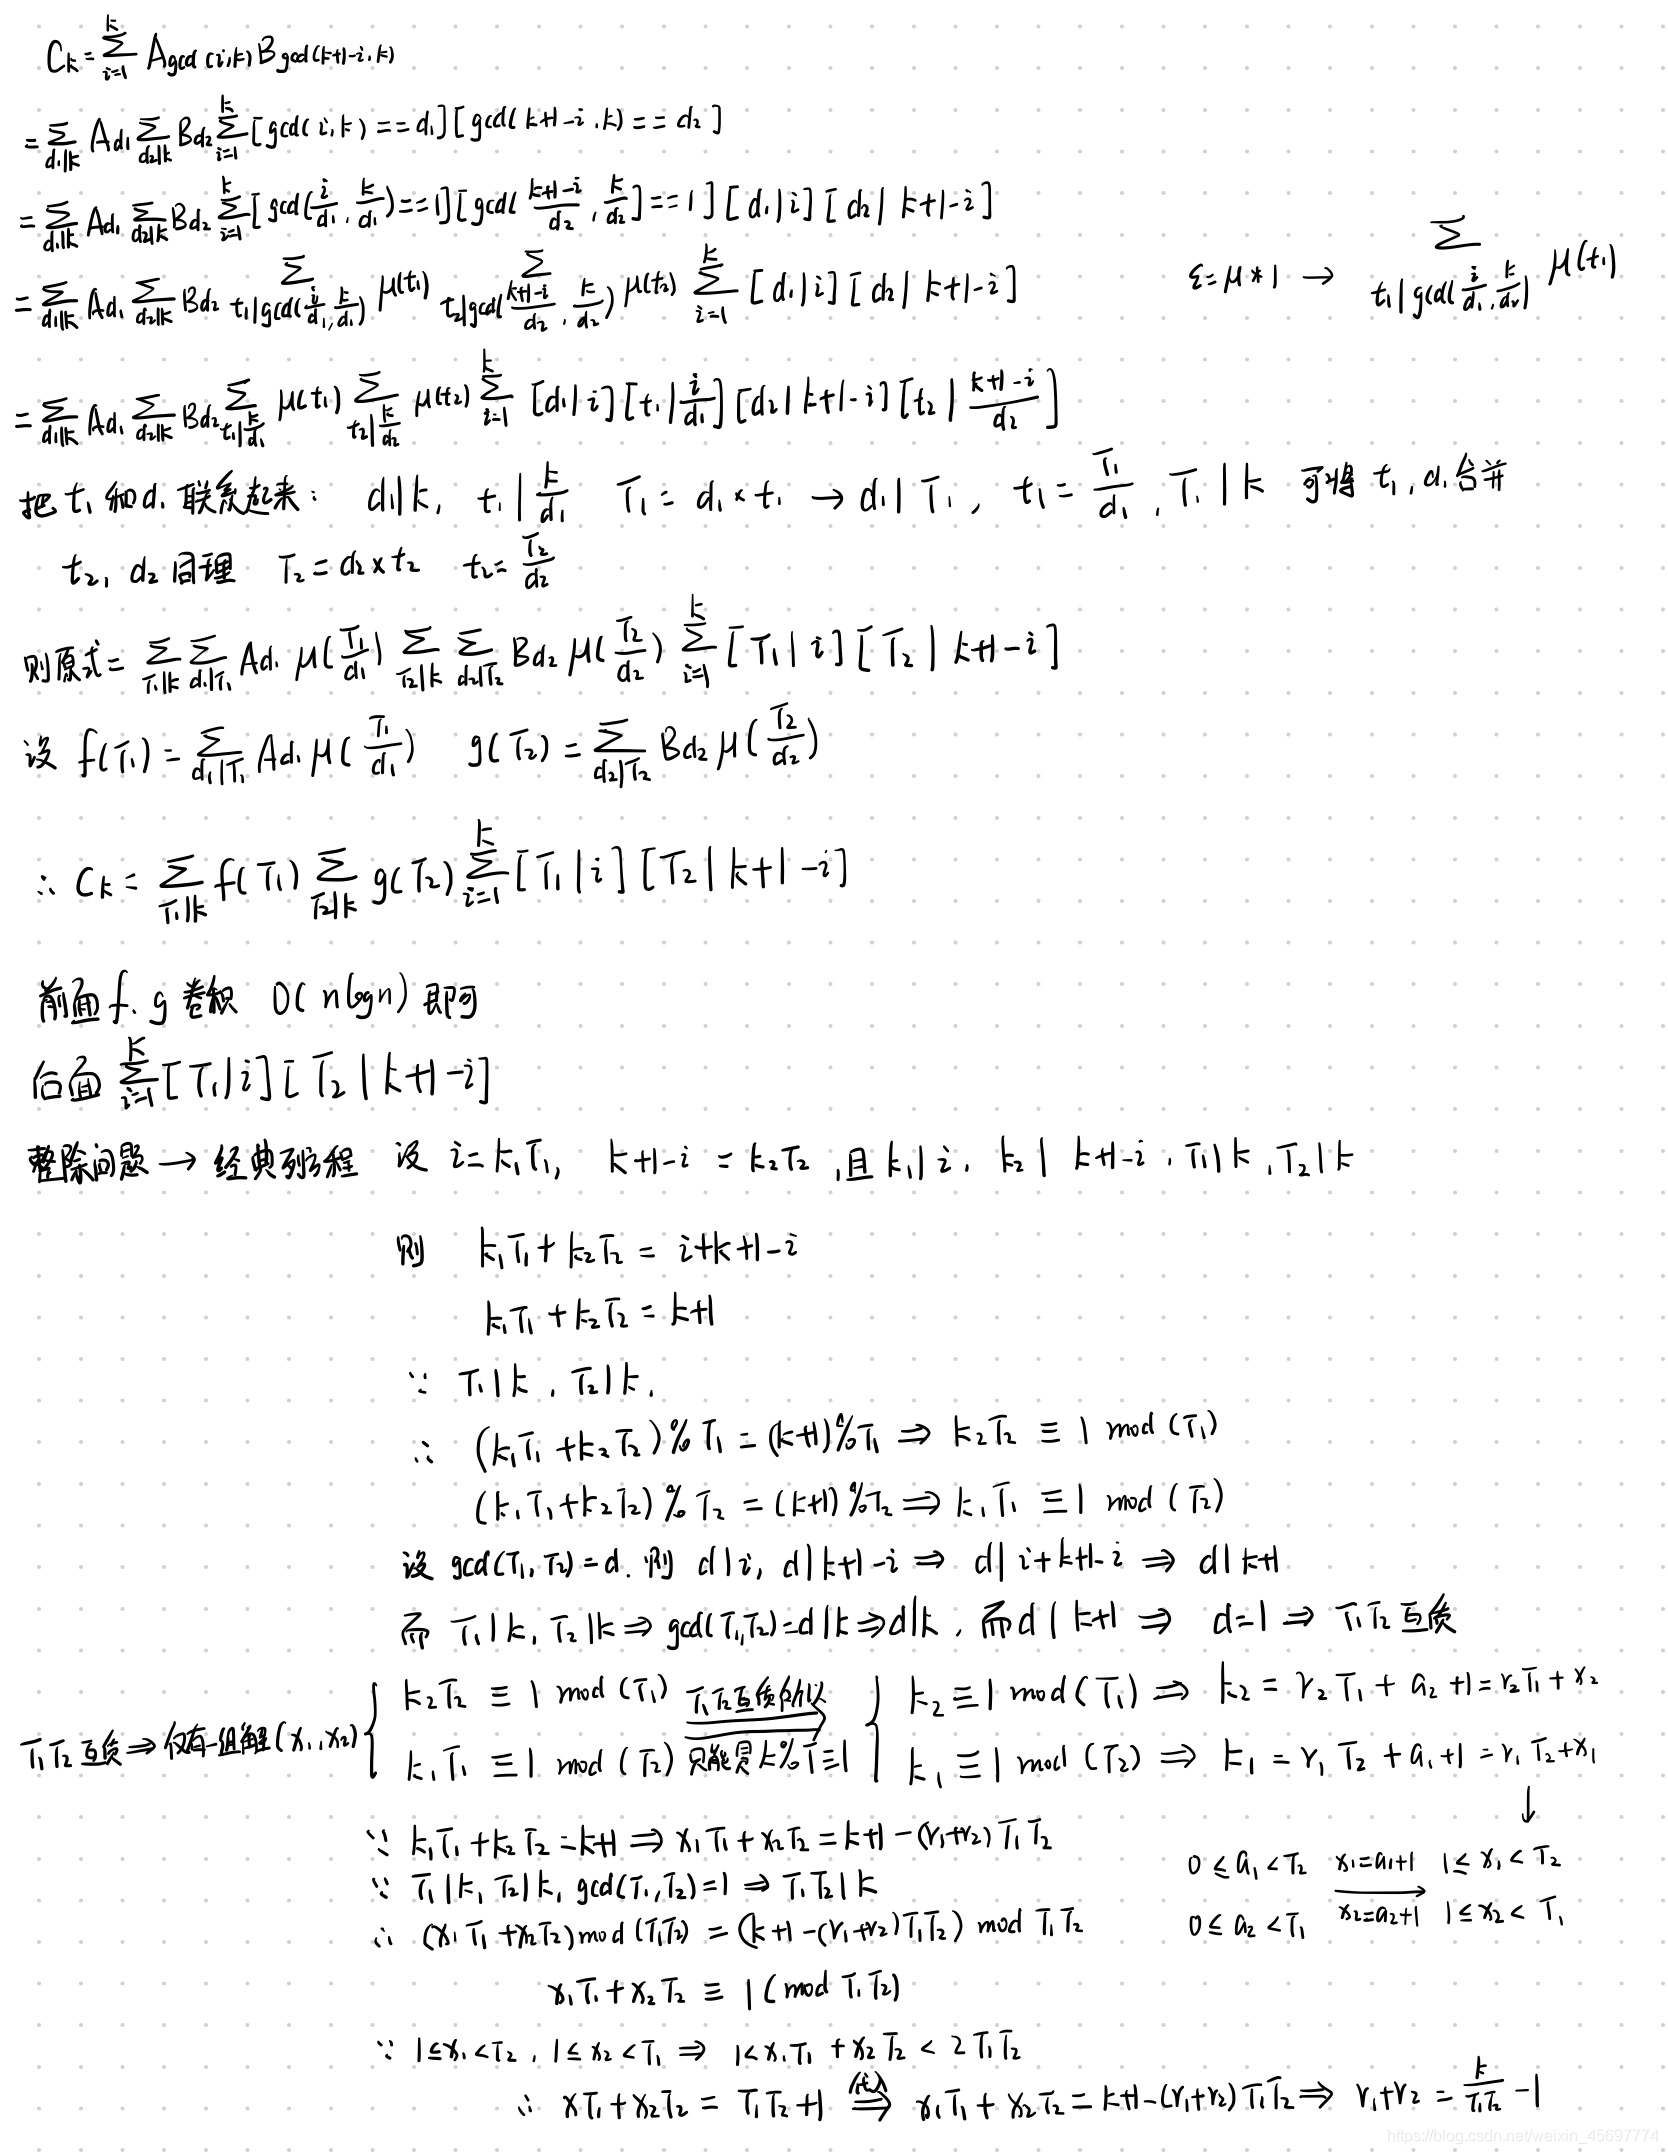 C_k = \sum_{i=1}^{k} A_{gcd(i,k)} B_{gcd(k+1-i,k)}
= \sum_{d_1|k} A_{d_1} \sum_{d_2|k} B_{d_2} \sum_{i=1}^{k} [gcd(i,k)==d_1][gcd(k+1-i,k)==d_2]
= \sum_{d_1|k} A_{d_1} \sum_{d_2|k} B_{d_2} \sum_{i=1}^{k} [gcd(\frac{i}{d_1},\frac{k}{d_1})==1][gcd(\frac{k+1-i}{d_2},\frac{k}{d_2}]==1][d_1|i][d_2|k+1-i]
= \sum_{d_1|k} A_{d_1} \sum_{d_2|k} B_{d_2} \sum_{t_1|gcd(\frac{i}{d_1},\frac{k}{d_1})} μ(t_1) \sum_{t_2|gcd(\frac{k+1-i}{d_2},\frac{k}{d_2})} μ(t_2) \sum_{i=1}^{k} [d_1|i][d_2|k+1-i] ε=μ*1 → \sum_{t_1|gcd(\frac{i}{d_1},\frac{k}{d_1})} μ(t_1)
= \sum_{d_1|k} A_{d_1} \sum_{d_2|k} B_{d_2} \sum_{t_1|\frac{k}{d_1}} μ(t_1) \sum_{t_2|\frac{k}{d_2}} μ(t_2) \sum_{i=1}^{k} [d_1|i][t_1|\frac{i}{d_1}][d_2|k+1-i][t_2|\frac{k+1-i}{d_2}]
把 t_1 和 d_1 联系起来： d_1|k, t_1|\frac{k}{d_1} T_1 = d_1×t_1 → d_1|T_1, t_1=\frac{T_1}{d_1}, T_1|k 可将 t_1,d_1合并
t_2, d_2 同理 T_2=d_2×t_2 t_2=\frac{T_2}{d_2}
则原式= \sum_{T_1|k} \sum_{d_1|T_1} A_{d_1} μ(\frac{T_1}{d_1}) \sum_{T_2|k} \sum_{d_2|T_2} B_{d_2} μ(\frac{T_2}{d_2}) \sum_{i=1}^{k} [T_1|i][T_2|k+1-i]
设 f(T_1) = \sum_{d_1|T_1} A_{d_1} μ(\frac{T_1}{d_1}) g(T_2) = \sum_{d_2|T_2} B_{d_2} μ(\frac{T_2}{d_2})
∴ C_k = \sum_{T_1|k} f(T_1) \sum_{T_2|k} g(T_2) \sum_{i=1}^{k} [T_1|i][T_2|k+1-i]
前面 f, g 卷积 O(nlogn) 即可
后面 \sum_{i=1}^{k} [T_1|i][T_2|k+1-i]
整除问题 → 经典列方程 设 i=k_1T_1, k+1-i = k_2T_2, 且 k_1|i, k_2|k+1-i, T_1|k, T_2|k
则 k_1T_1+k_2T_2 = i+k+1-i
k_1T_1+k_2T_2 = k+1
∵ T_1|k, T_2|k,
∴ (k_1T_1+k_2T_2)%T_1 = (k+1)%T_1 ⇒ k_2T_2 ≡ 1 mod (T_1)
(k_1T_1+k_2T_2)%T_2 = (k+1)%T_2 ⇒ k_1T_1 ≡ 1 mod (T_2)
设 gcd(T_1,T_2)=d. 则 d|i, d|k+1-i ⇒ d|i+k+1-i ⇒ d|k+1
而 T_1|k, T_2|k ⇒ gcd(T_1,T_2)=d|k ⇒ d|k, 而 d|k+1 ⇒ d=1 ⇒ T_1T_2 互质
T_1T_2 互质 ⇒ 仅有一组解(x_1,x_2) { k_2T_2 ≡ 1 mod (T_1) T_1T_2互质所以 } k_2 ≡ 1 mod (T_1) ⇒ k_2 = r_2T_1+a_2+1 = r_2T_1+x_2
k_1T_1 ≡ 1 mod (T_2) 只能是 k%T≡1 k_1 ≡ 1 mod (T_2) ⇒ k_1 = r_1T_2+a_1+1 = r_1T_2+x_1
↓
∵ k_1T_1+k_2T_2=k+1 ⇒ x_1T_1+x_2T_2=k+1-(r_1+r_2)T_1T_2 0≤a_1<T_2 \xrightarrow{x_1=a_1+1} 1≤x_1<T_2
∵ T_1|k, T_2|k, gcd(T_1,T_2)=1 ⇒ T_1T_2|k
∴ (x_1T_1+x_2T_2) mod (T_1T_2) = (k+1-(r_1+r_2)T_1T_2) mod T_1T_2 0≤a_2<T_1 x_2=a_2+1 1≤x_2<T_1
x_1T_1+x_2T_2 ≡ 1 (mod T_1T_2)
∵ 1≤x_1<T_2, 1≤x_2<T_1 ⇒ 1<x_1T_1+x_2T_2<2T_1T_2
∴ xT_1+x_2T_2 = T_1T_2+1 \xRightarrow{代入} x_1T_1+x_2T_2=k+1-(r_1+r_2)T_1T_2 ⇒ r_1+r_2=\frac{k}{T_1T_2}-1
https://blog.csdn.net/weixin_45697774